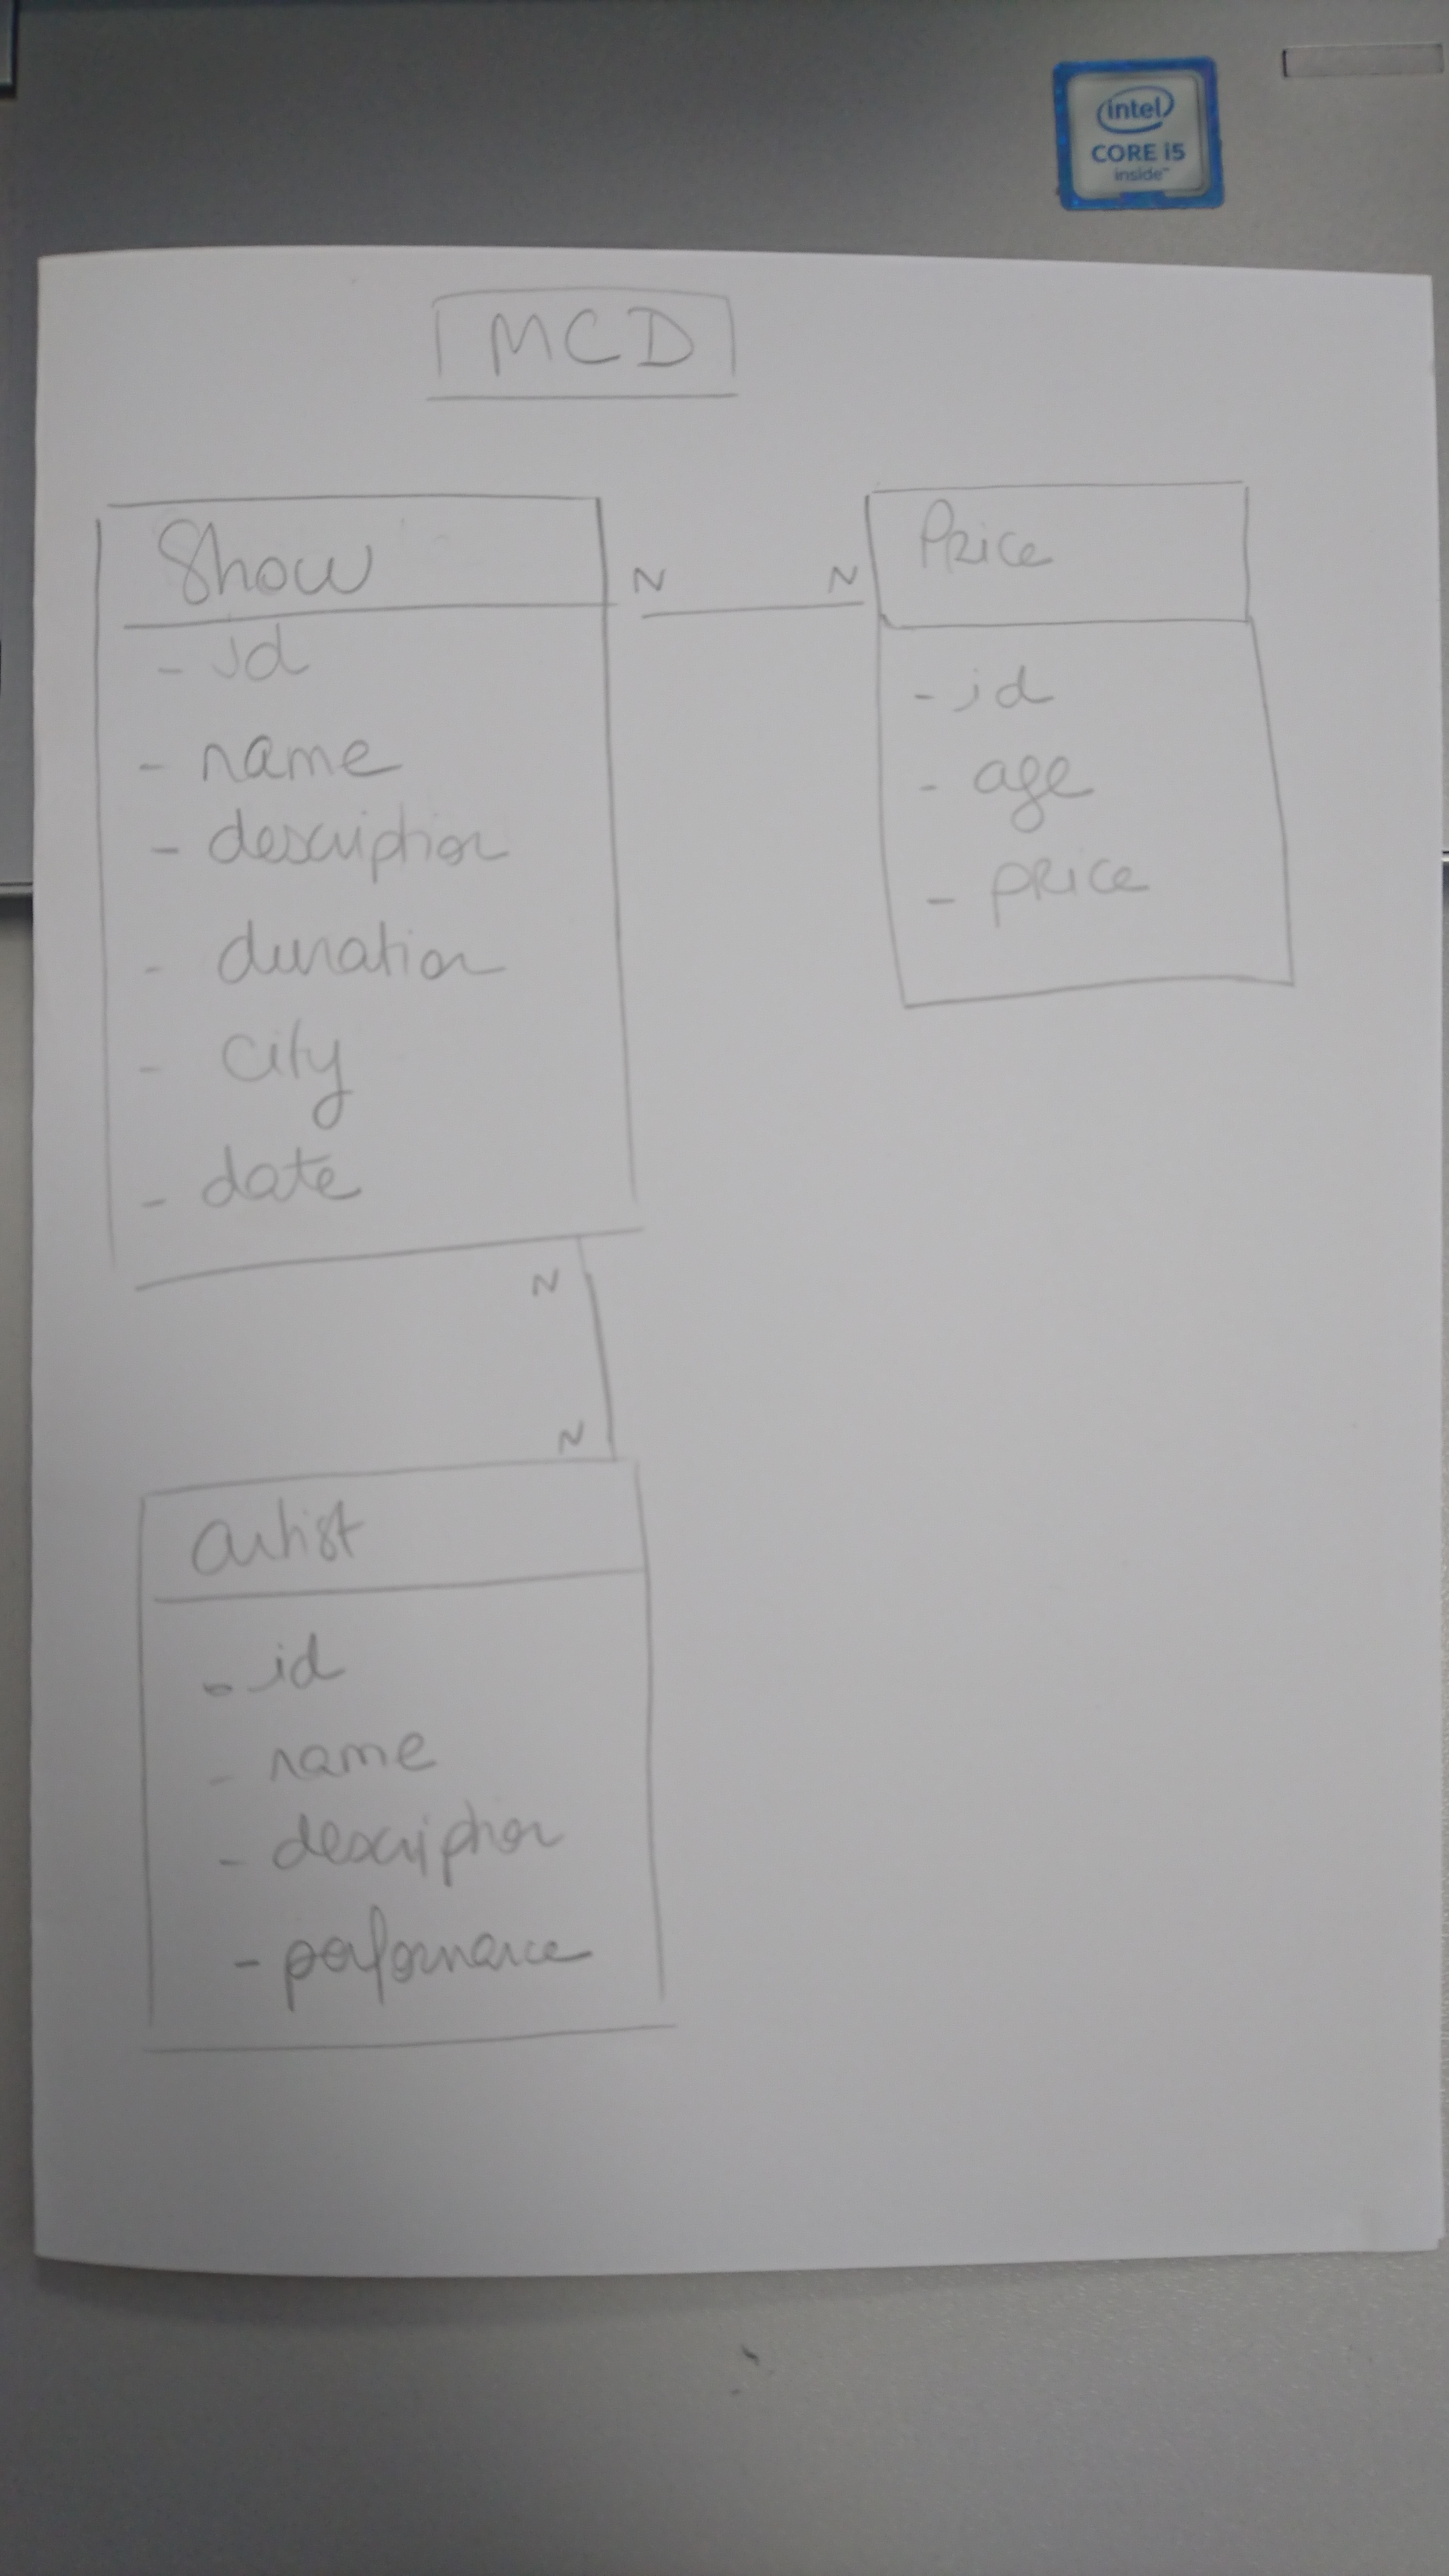 intel
CORE i5
inside™
MCD
Show
- id
- name
- description
- duration
- city
- date
N N
Price
- id
- age
- price
N
N
artist
- id
- name
- description
- performance